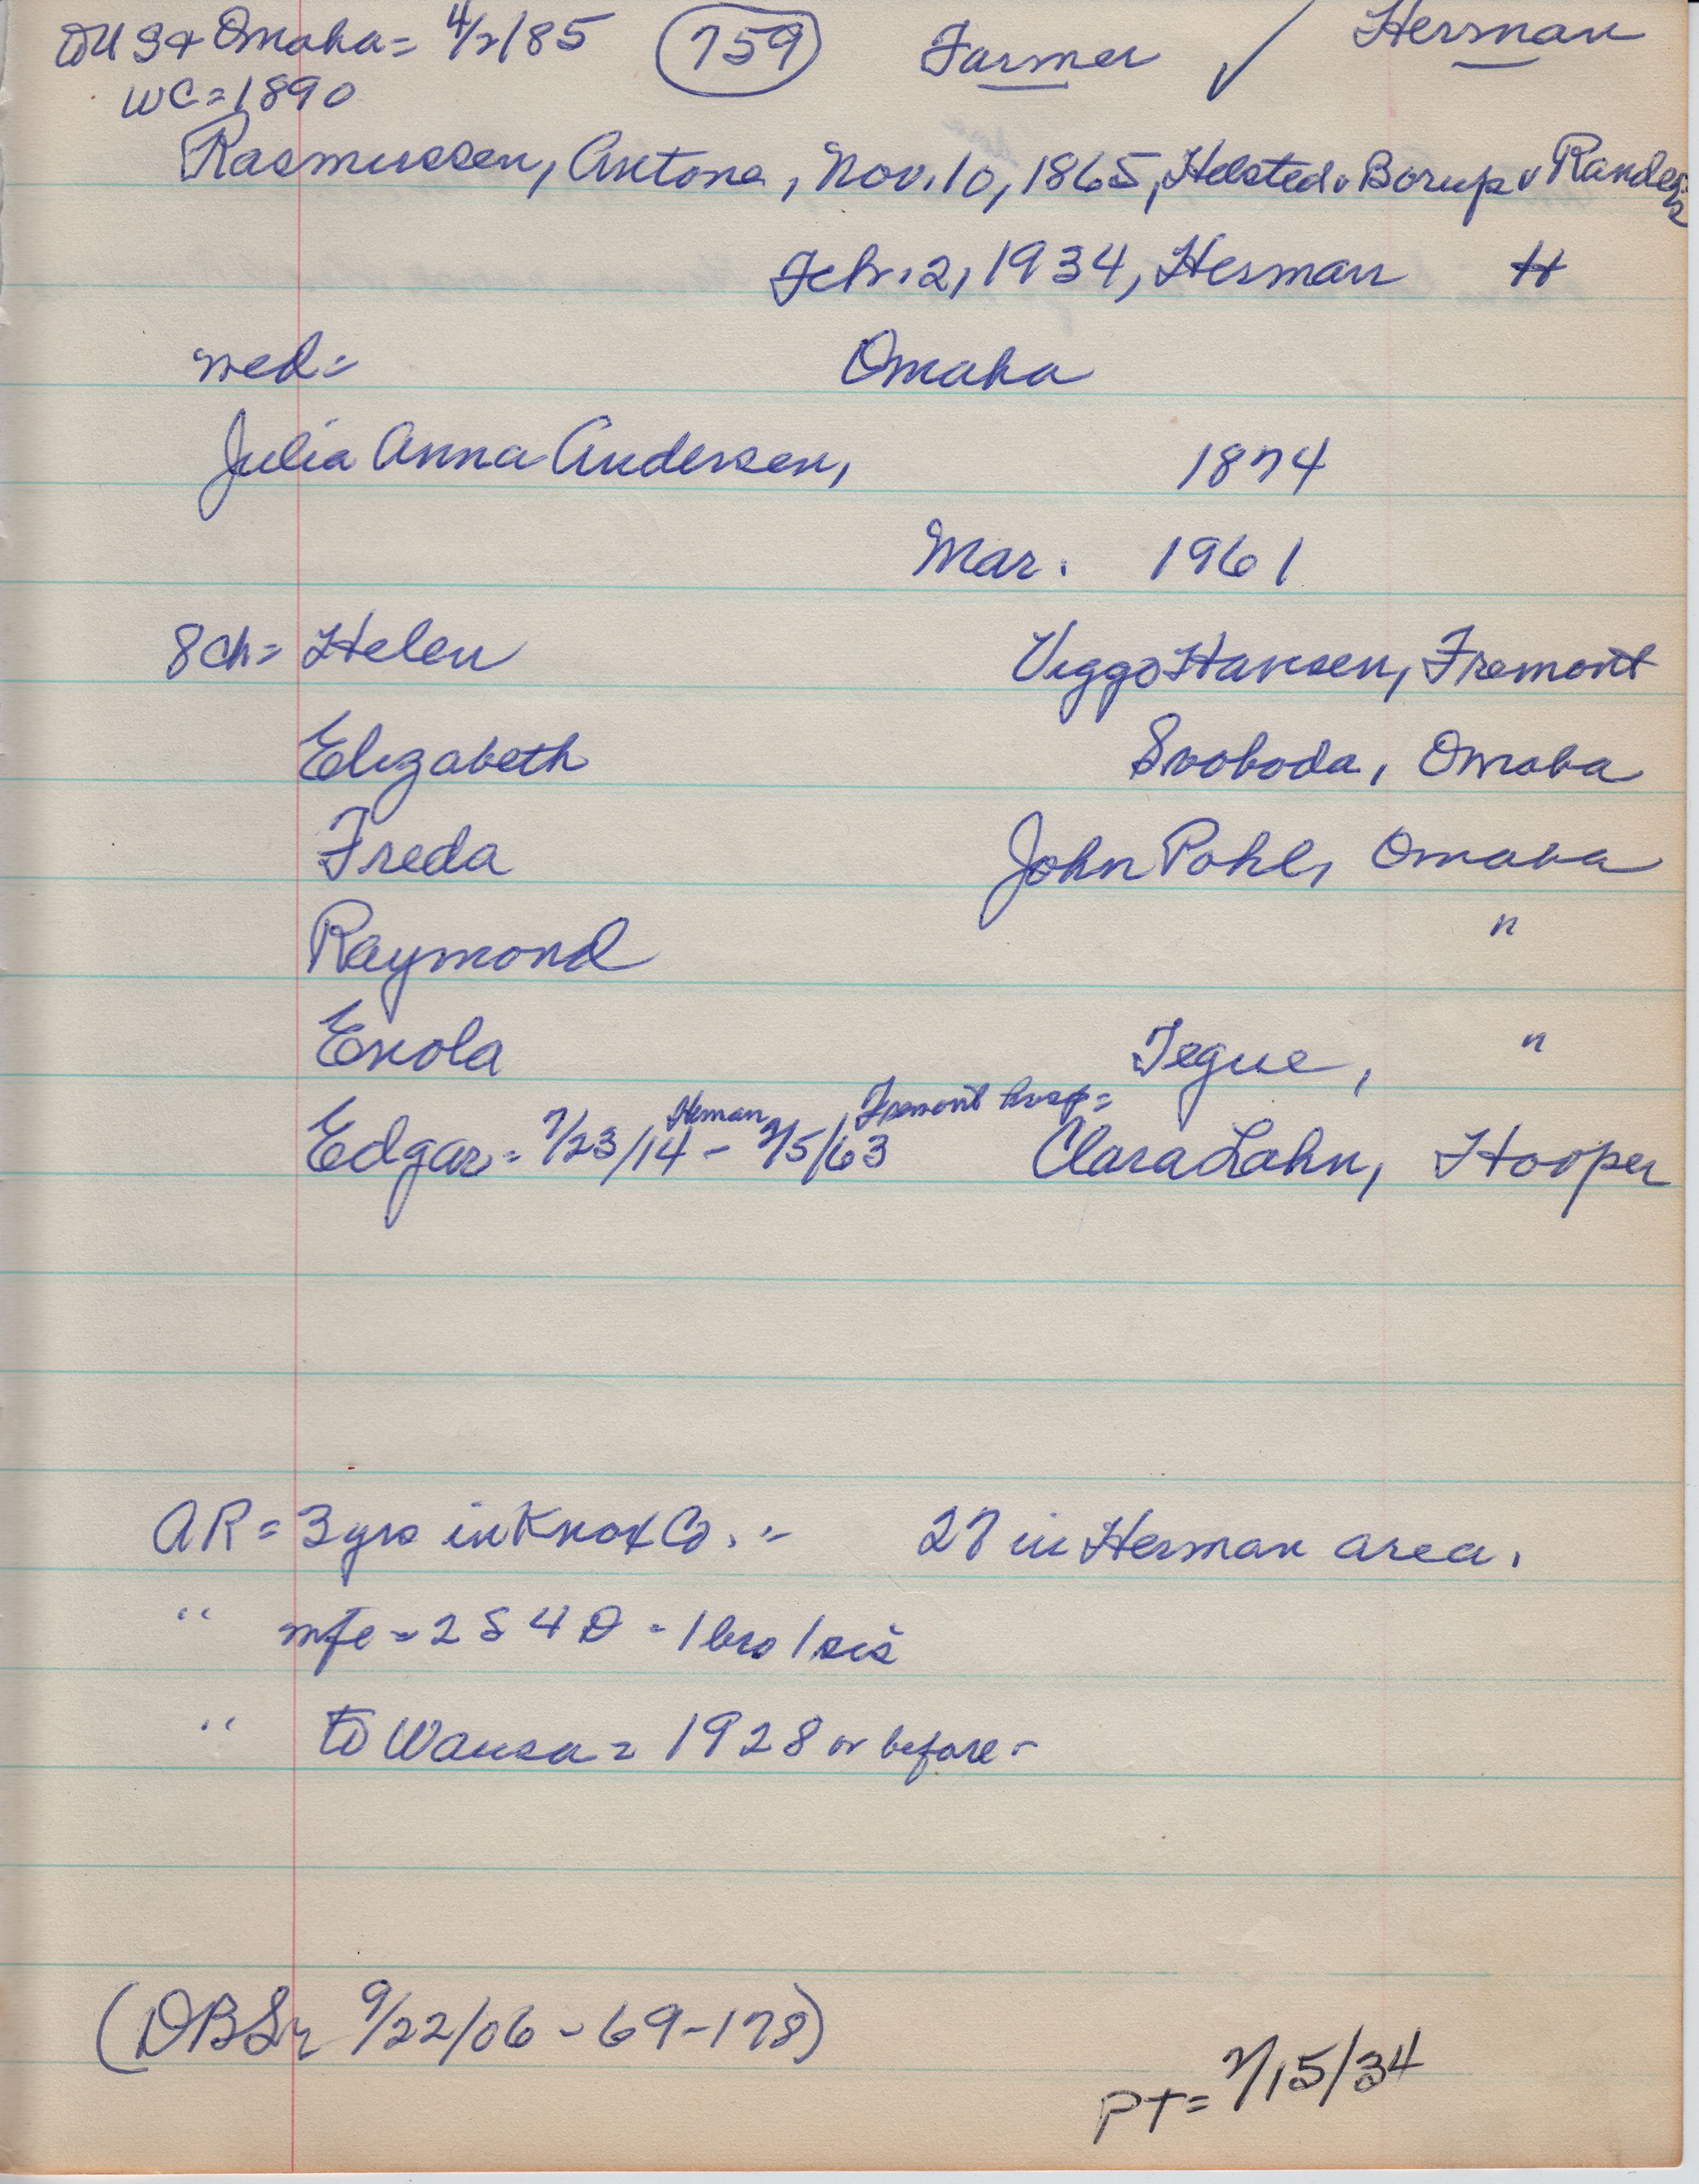 US + Omaha = 4/2/85 (759) Farmer ✓ Herman
WC = 1890
Rasmussen, Antone, Nov. 10, 1865, Helsted v Borup v Randers
Febr. 2, 1934, Herman H
med = Omaha
Julia Anna Andersen, 1874
Mar. 1961
8 ch = Helen Viggo Hansen, Fremont
Elizabeth Svoboda, Omaha
Freda John Pohl, Omaha
Raymond "
Enola Tegue, "
Herman Fremont hosp =
Edgar = 7/23/14 - 2/5/63 Clara Lahn, Hooper
AR = 3 yrs in Knox Co. - 27 in Herman area.
" mfe = 2 S 4 D - 1 bro 1 sis
" to Wausa = 1928 or before -
(DBSr 9/22/06 - 69-178)
PT = 2/15/34